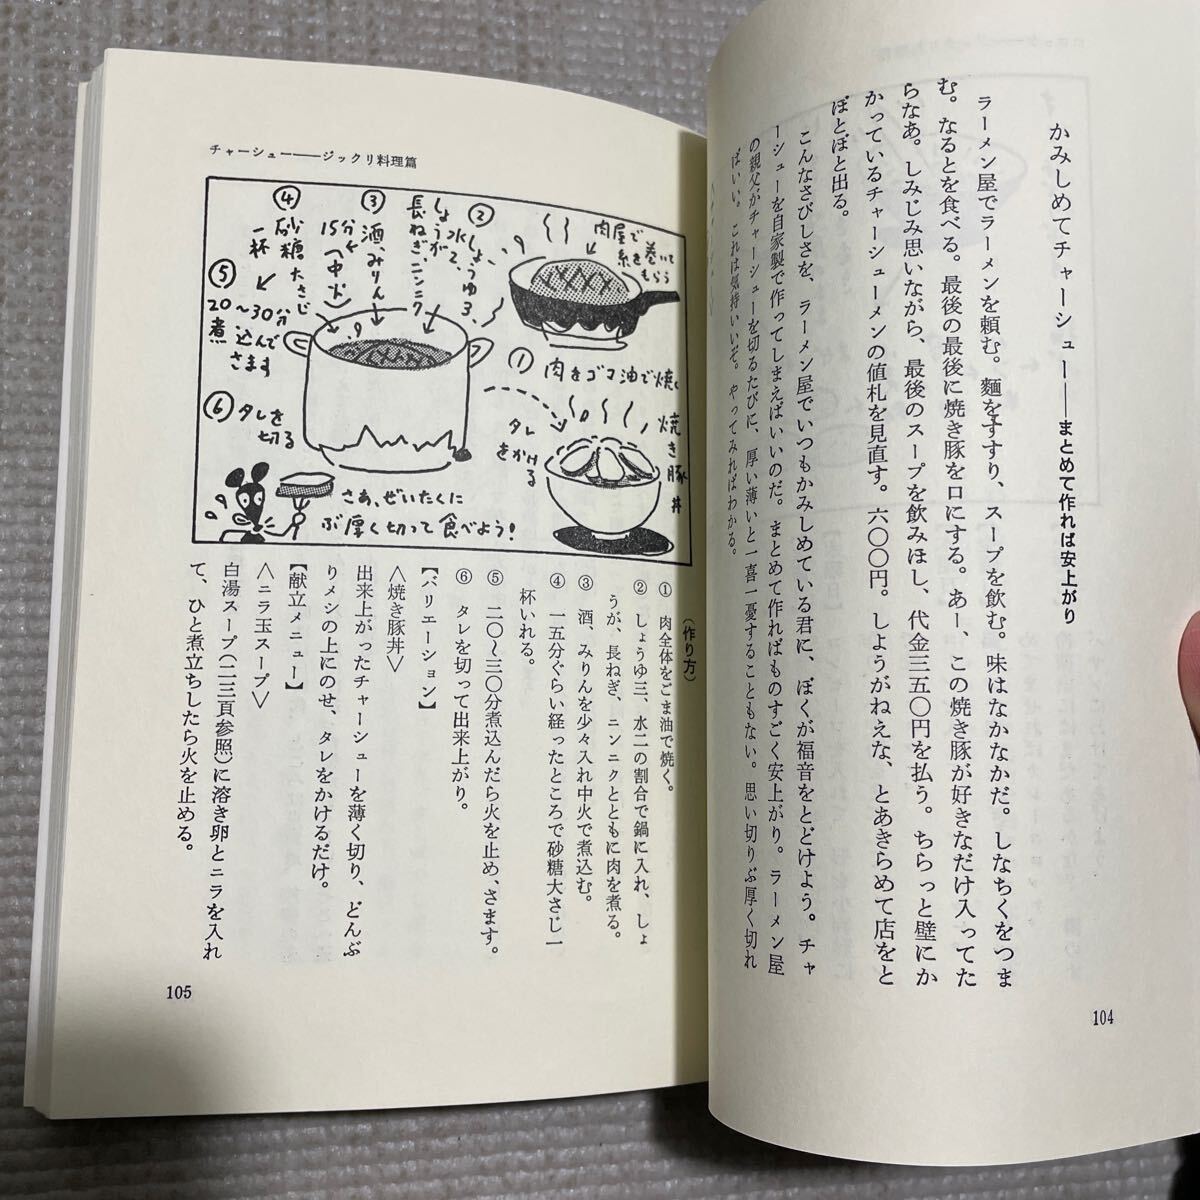 かみしめてチャーシュー――まとめて作れば安上がり
ラーメン屋でラーメンを頼む。麺をすすり、スープを飲む。味はなかなかだ。しなちくをつま
む。なるとを食べる。最後の最後に焼き豚を口にする。あー、この焼き豚が好きなだけ入ってた
らなあ。しみじみ思いながら、最後のスープを飲みほし、代金三五〇円を払う。ちらっと壁にか
かっているチャーシューメンの値札を見直す。六〇〇円。しようがねえな、とあきらめて店をと
ぼとぼと出る。
こんなさびしさを、ラーメン屋でいつもかみしめている君に、ぼくが福音をとどけよう。チャ
ーシューを自家製で作ってしまえばいいのだ。まとめて作ればものすごく安上がり。ラーメン屋
の親父がチャーシューを切るたびに、厚い薄いと一喜一憂することもない。思い切りぶ厚く切れ
ばいい。これは気持いいぞ。やってみればわかる。
104
チャーシュー――ジックリ料理篇
肉屋で
糸を巻いて
もらう
①肉をゴマ油で焼く
②しょうゆ3、
水2、
しょうが、
長ねぎ、ニンニク
③酒、みりん
15分
(中火)
④砂糖大さじ
一杯
⑤20〜30分
煮込んで
さます
⑥タレを
切る
焼き豚丼
タレ
をかける
さあ、ぜいたくに
ぶ厚く切って食べよう!
(作り方)
① 肉全体をごま油で焼く。
② しょうゆ三、水二の割合で鍋に入れ、しょ
うが、長ねぎ、ニンニクとともに肉を煮る。
③ 酒、みりんを少々入れ中火で煮込む。
④ 一五分ぐらい経ったところで砂糖大さじ一
杯いれる。
⑤ 二〇〜三〇分煮込んだら火を止め、さます。
⑥ タレを切って出来上がり。
【バリエーション】
〈焼き豚丼〉
出来上がったチャーシューを薄く切り、どんぶ
りメシの上にのせ、タレをかけるだけ。
【献立メニュー】
〈ニラ玉スープ〉
白湯スープ(二三頁参照)に溶き卵とニラを入れ
て、ひと煮立ちしたら火を止める。
105